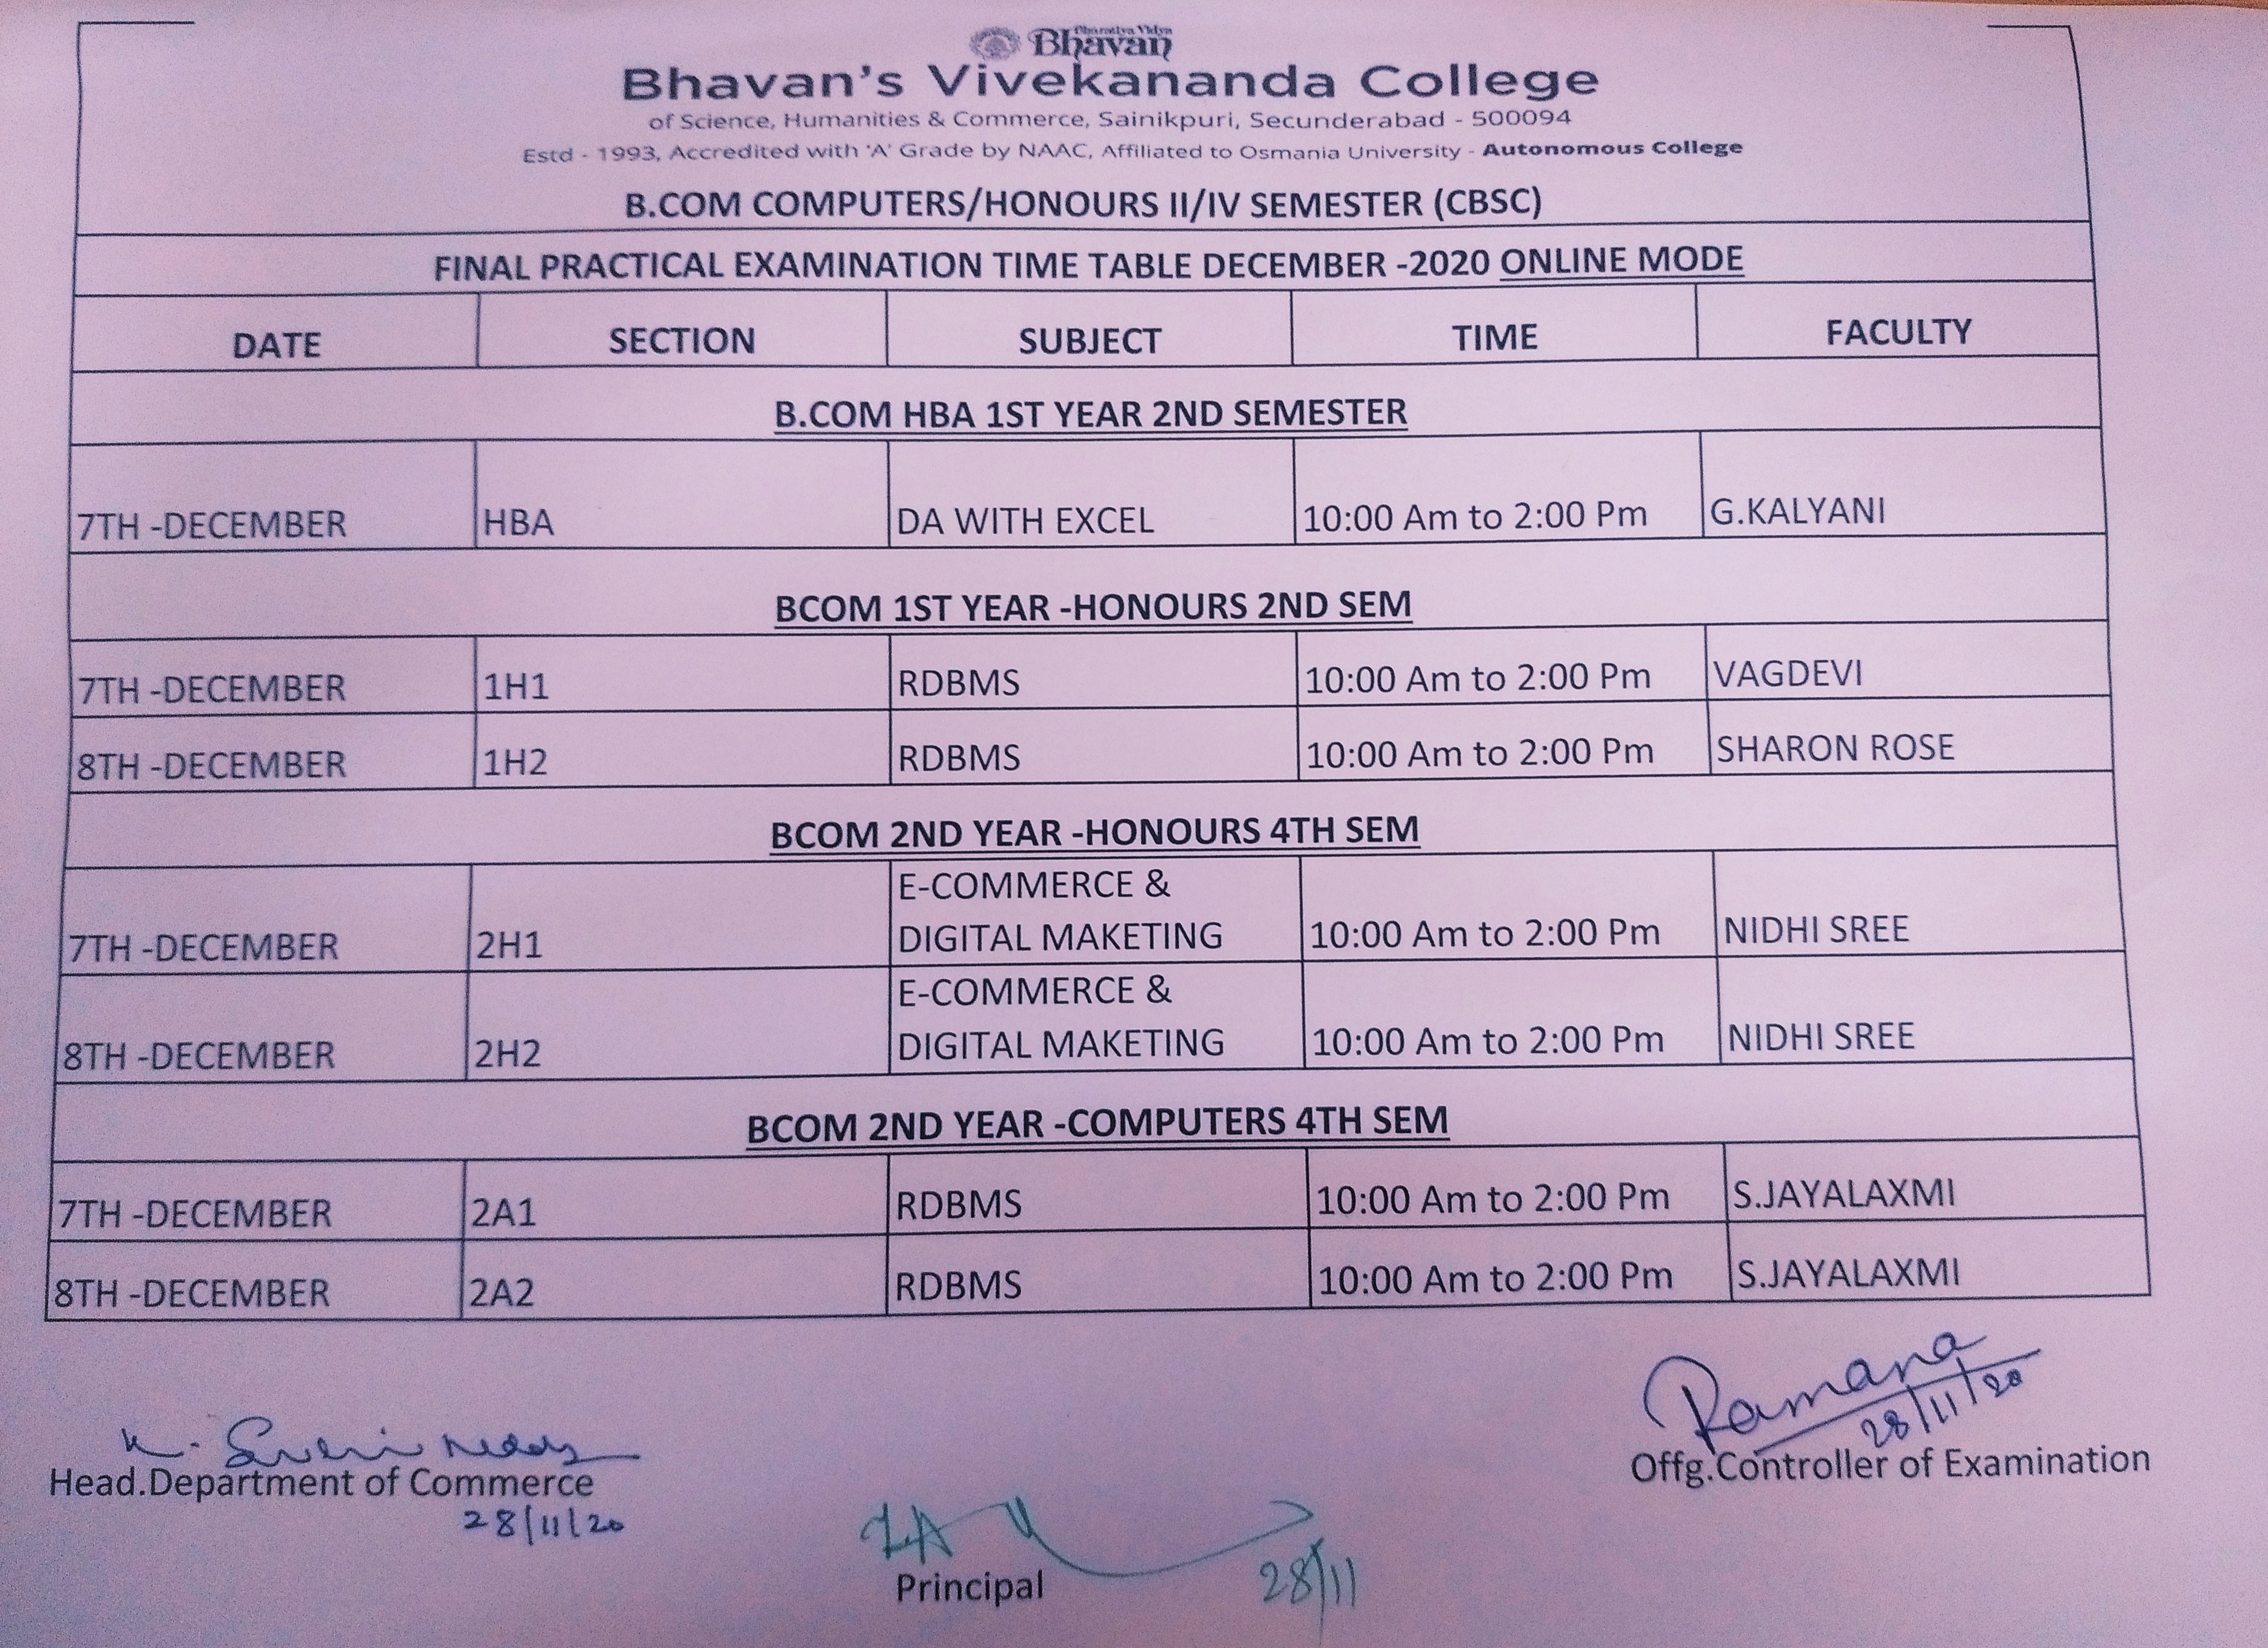 Bharatiya Vidya
Bhavan
Bhavan's Vivekananda College
of Science, Humanities & Commerce, Sainikpuri, Secunderabad - 500094
Estd - 1993, Accredited with 'A' Grade by NAAC, Affiliated to Osmania University - Autonomous College
B.COM COMPUTERS/HONOURS II/IV SEMESTER (CBSC)
FINAL PRACTICAL EXAMINATION TIME TABLE DECEMBER -2020 ONLINE MODE
DATE SECTION SUBJECT TIME FACULTY
B.COM HBA 1ST YEAR 2ND SEMESTER
7TH -DECEMBER HBA DA WITH EXCEL 10:00 Am to 2:00 Pm G.KALYANI
BCOM 1ST YEAR -HONOURS 2ND SEM
7TH -DECEMBER 1H1 RDBMS 10:00 Am to 2:00 Pm VAGDEVI
8TH -DECEMBER 1H2 RDBMS 10:00 Am to 2:00 Pm SHARON ROSE
BCOM 2ND YEAR -HONOURS 4TH SEM
E-COMMERCE &
7TH -DECEMBER 2H1 DIGITAL MAKETING 10:00 Am to 2:00 Pm NIDHI SREE
E-COMMERCE &
8TH -DECEMBER 2H2 DIGITAL MAKETING 10:00 Am to 2:00 Pm NIDHI SREE
BCOM 2ND YEAR -COMPUTERS 4TH SEM
7TH -DECEMBER 2A1 RDBMS 10:00 Am to 2:00 Pm S.JAYALAXMI
8TH -DECEMBER 2A2 RDBMS 10:00 Am to 2:00 Pm S.JAYALAXMI
Ramana
28/11/20
Offg.Controller of Examination
Head.Department of Commerce
28/11/20
28/11
Principal